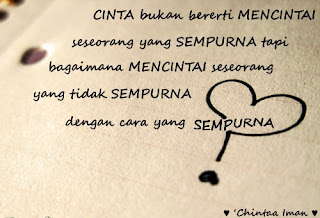 CINTA bukan bererti MENCINTAI
seseorang yang SEMPURNA tapi
bagaimana MENCINTAI seseorang
yang tidak SEMPURNA
dengan cara yang SEMPURNA
♥ 'Chintaa Iman ♥